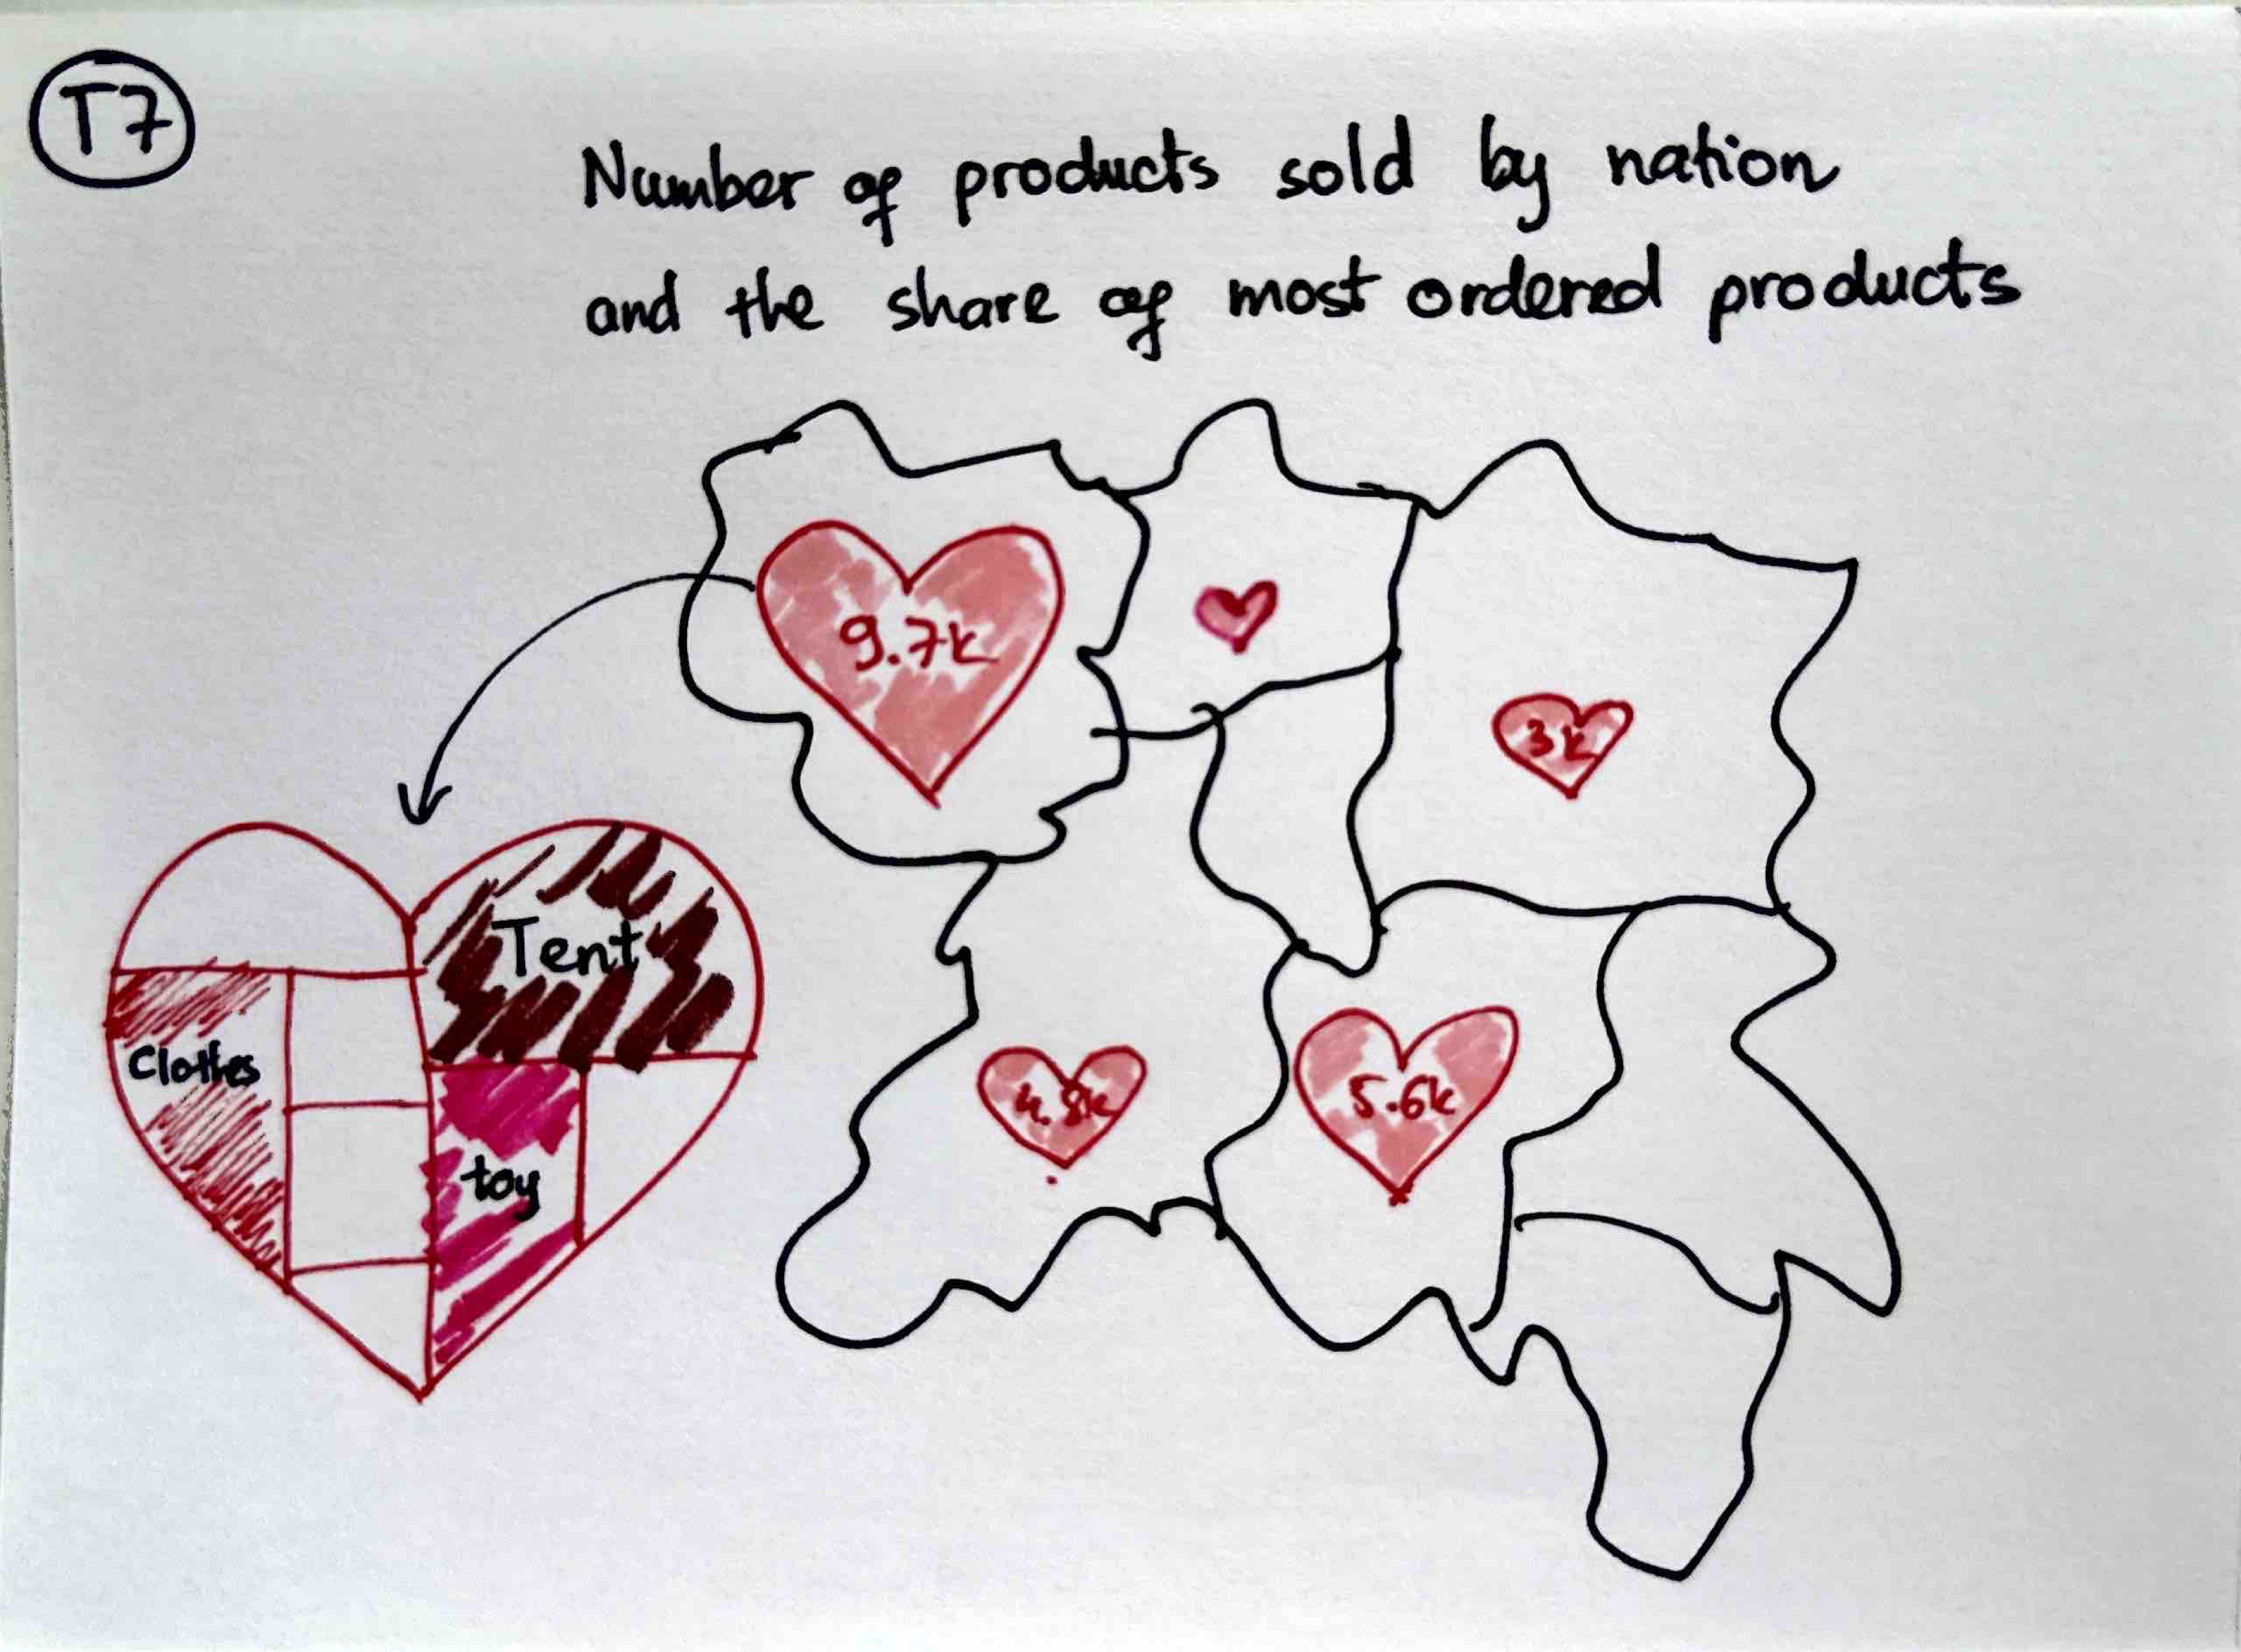 T7
Number of products sold by nation
and the share of most ordered products
9.7k
3k
4.8k
5.6k
Tent
Clothes
toy